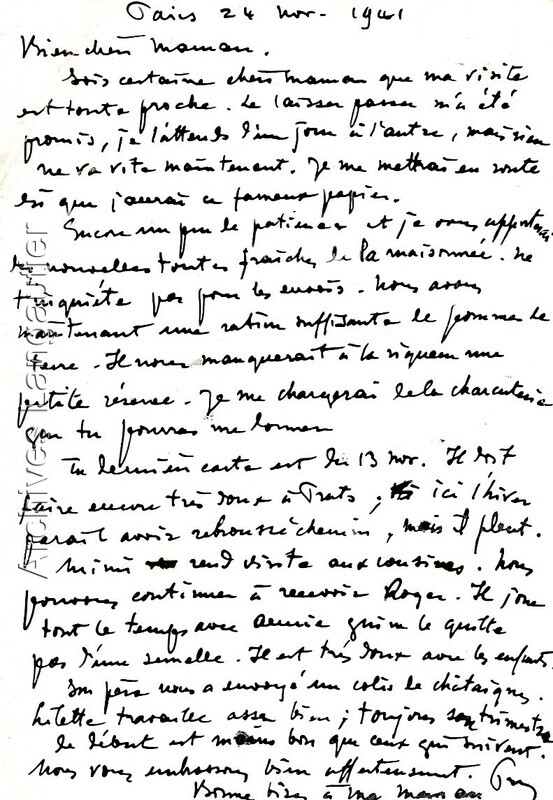 Paris 24 nov. 1941
Bien chère Maman.
Sois certaine chère Maman que ma visite
est toute proche. Le laisser passer m'a été
promis, je l'attends d'un jour à l'autre, mais rien
ne va vite maintenant. Je me mettrai en route
dès que j'aurai ce fameux papier.
Encore un peu de patience et je vous apporterai
des nouvelles toutes fraîches de la maisonnée. Ne
t'inquiète pas pour les envois. Nous avons
maintenant une ration suffisante de pommes de
terre. Il nous manquerait à la rigueur une
petite réserve. Je me chargerai de la charcuterie
que tu pourras me donner
Ta dernière carte est du 13 nov. Il doit
faire encore très doux à Prats ; ici l'hiver
paraît avoir rebroussé chemin, mais il pleut.
Mimi rend visite aux cousines. Nous
pouvons continuer à recevoir Roger. Il joue
tout le temps avec qui ne le quitte
pas d'une semelle. Il est très doux avec les enfants.
Son père nous a envoyé un colis de châtaignes.
travaille assez bien ; toujours son trimestre
de début est moins bon que ceux qui suivent.
Nous vous embrassons bien affectueusement.
Bonne bises à ma maman
Archives Langautier